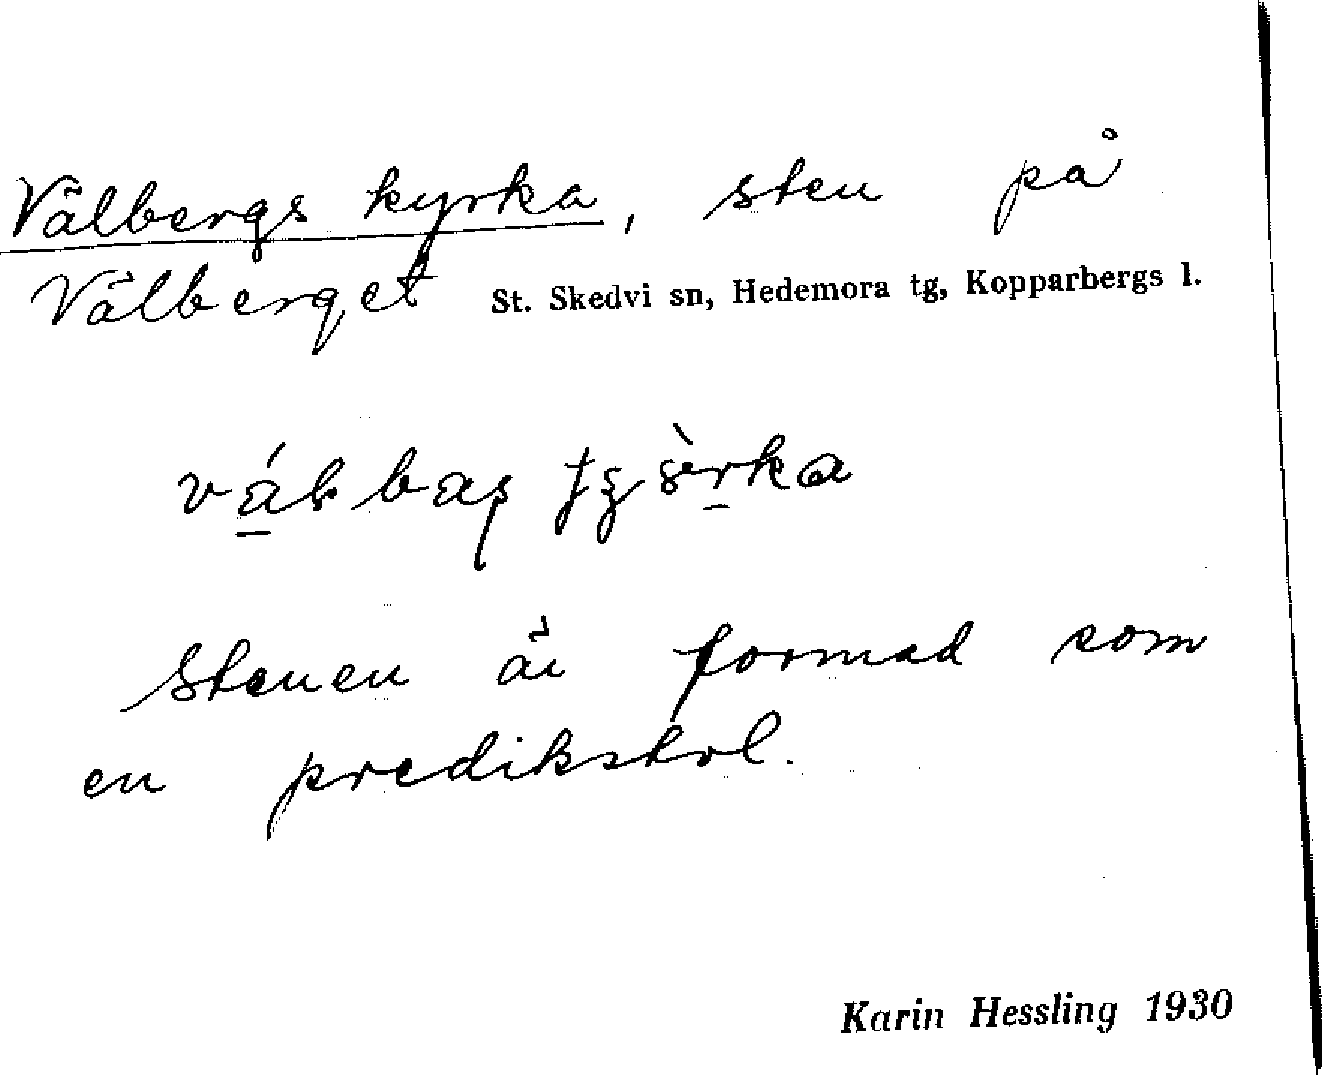 Välbergs kyrka, sten på
Välberget St. Skedvi sn, Hedemora tg, Kopparbergs l.
stenen är formad som
en predikstol.
Karin Hessling 1930